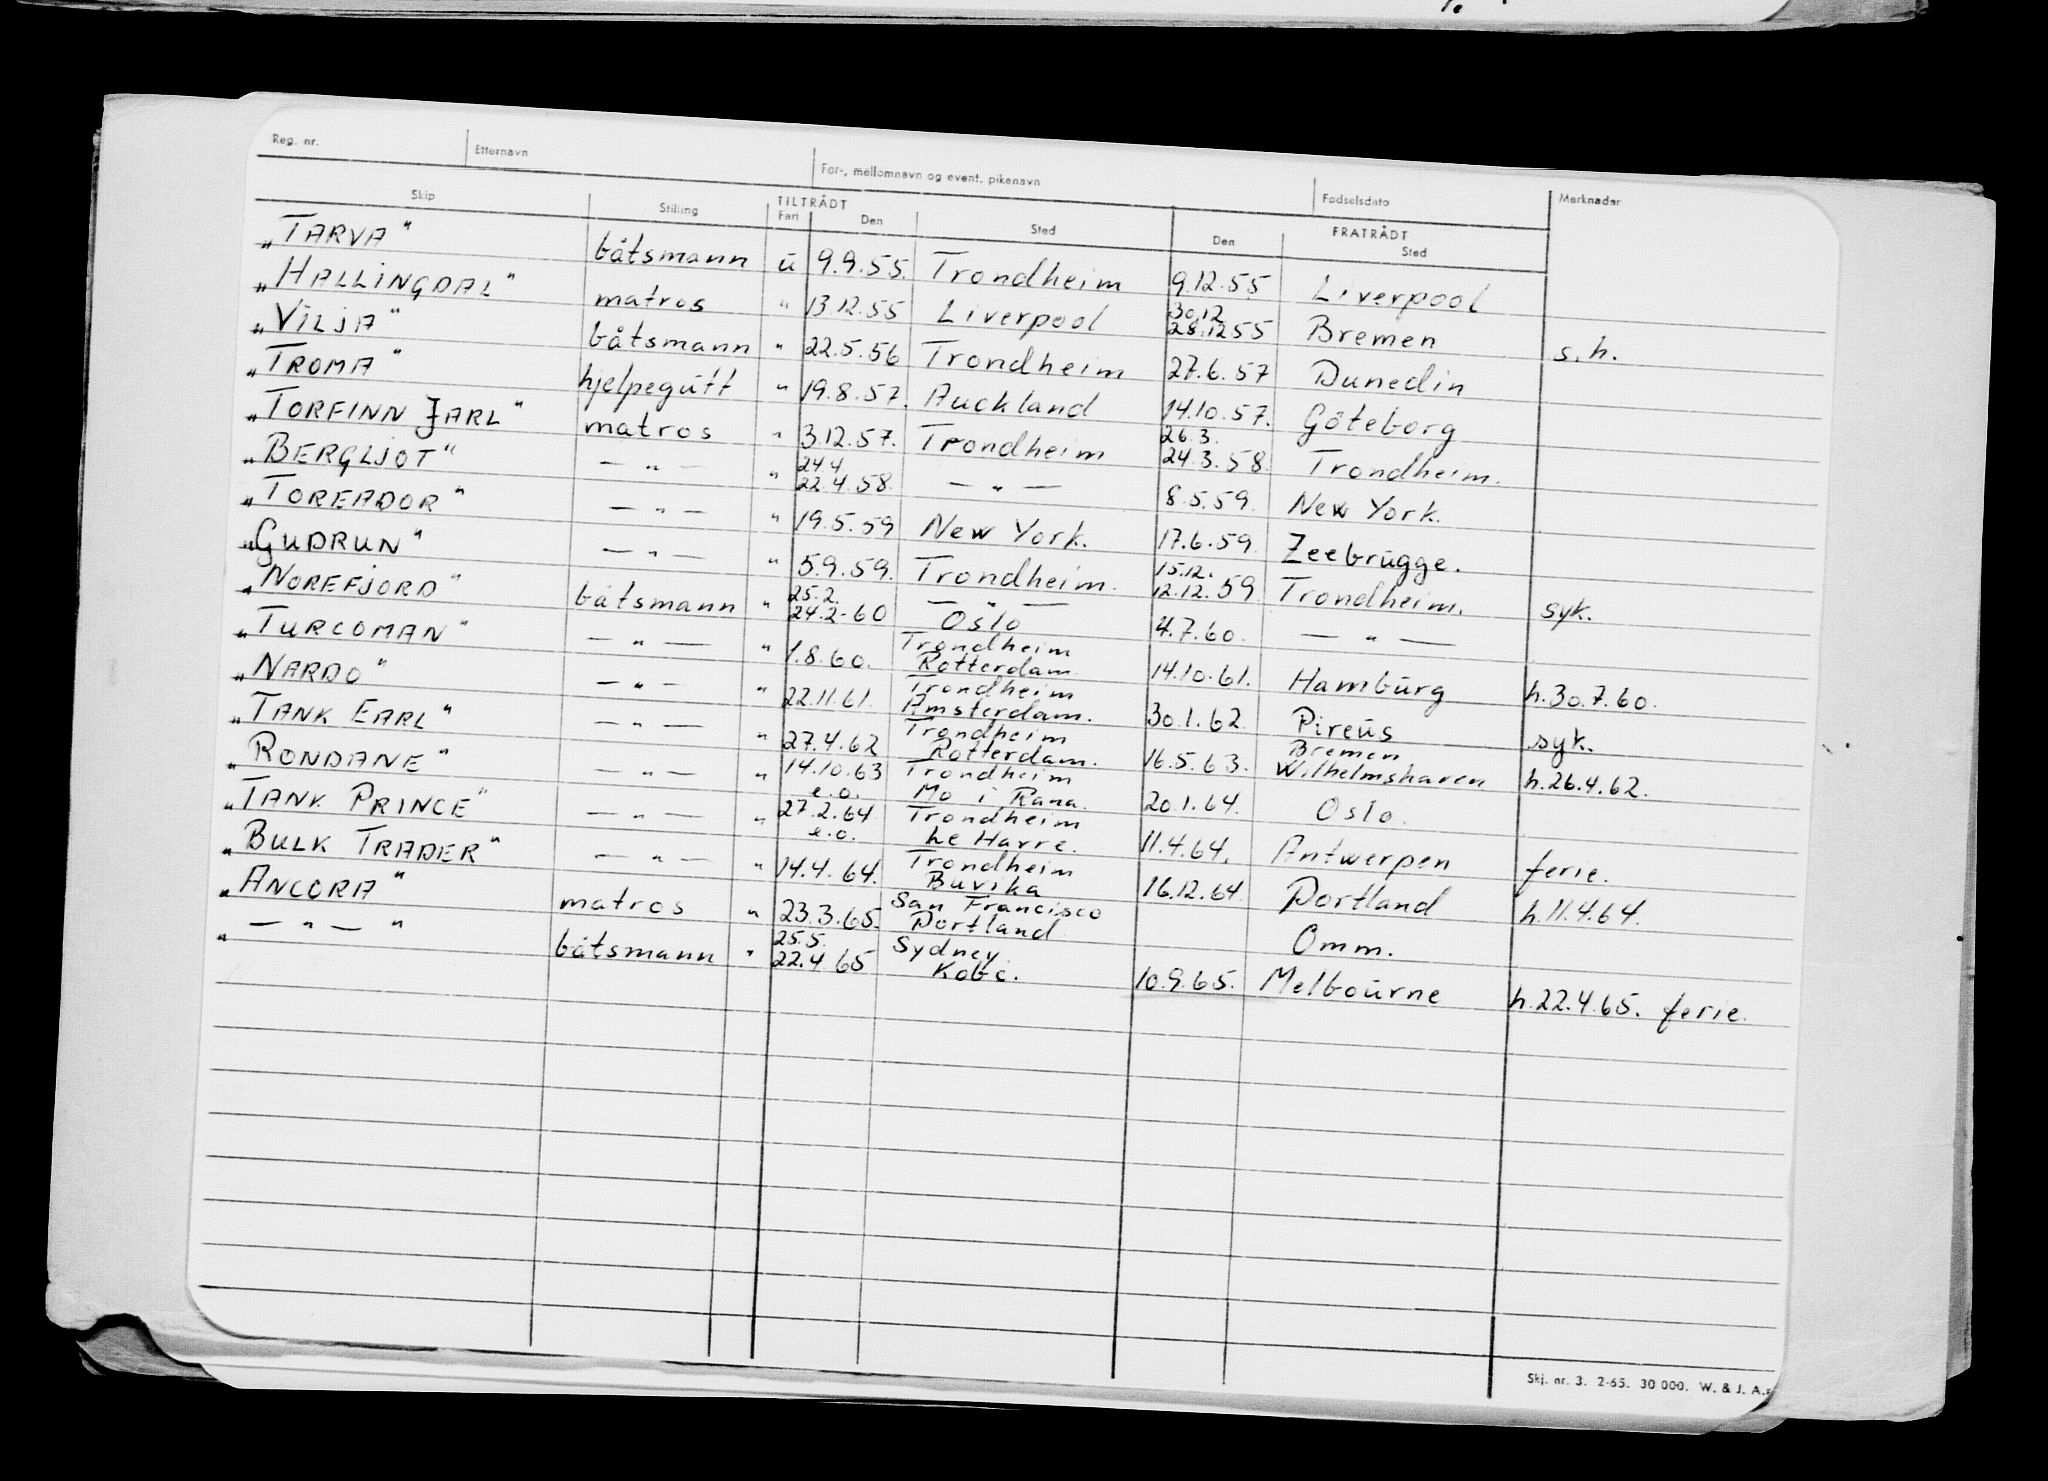 Reg. nr. Etternavn For-, mellomnavn og event. pikenavn Fødselsdato Merknader
Skip Stilling TILTRÅDT FRATRÅDT
Fart Den Sted Den Sted
„TARVA" båtsmann u 9.9.55. Trondheim 9.12.55 Liverpool
„HALLINGDAL" matros " 13.12.55 Liverpool 30.12 28.12 55 Bremen s.h.
„VILJA" båtsmann " 22.5.56 Trondheim 27.6.57 Dunedin
„TROMA" hjelpegutt " 19.8.57. Auckland 14.10.57. Göteborg
„TORFINN JARL" matros " 3.12.57. Trondheim 26.3. 24.3.58. Trondheim.
„BERGLJOT" — " — " 24.4 22.4.58. — " — 8.5.59. New York.
„TOREADOR" — " — " 19.5.59 New York. 17.6.59. Zeebrugge.
„GUDRUN" — " — " 5.9.59. Trondheim. 15.12. 12.12.59. Trondheim. syk.
„NOREFJORD" båtsmann " 25.2. 24.2-60 — " — Oslo 4.7.60. — " —
„TURCOMAN" — " — " 1.8.60. Trondheim Rotterdam 14.10.61. Hamburg h.30.7.60.
„NARDO" — " — " 22.11.61. Trondheim Amsterdam. 30.1.62. Pireus syk.
„TANK EARL" — " — " 27.4.62 Trondheim Rotterdam. 16.5.63. Bremen Wilhelmshaven h.26.4.62.
„RONDANE" — " — " 14.10.63 e.o. Trondheim Mo i Rana. 20.1.64. Oslo.
„TANK PRINCE" — " — " 27.2.64 e.o. Trondheim Le Havre. 11.4.64. Antwerpen ferie.
„BULK TRADER" — " — " 14.4.64. Trondheim Buvika 16.12.64. Portland h.11.4.64.
„ANCORA" matros " 23.3.65. San Francisco Portland Omm.
„ — " — " båtsmann " 25.5. 22.4 65 Sydney. Kobe. 10.9.65. Melbourne h.22.4.65. ferie.
Skj. nr. 3. 2-65. 30 000. W. & J. A.s